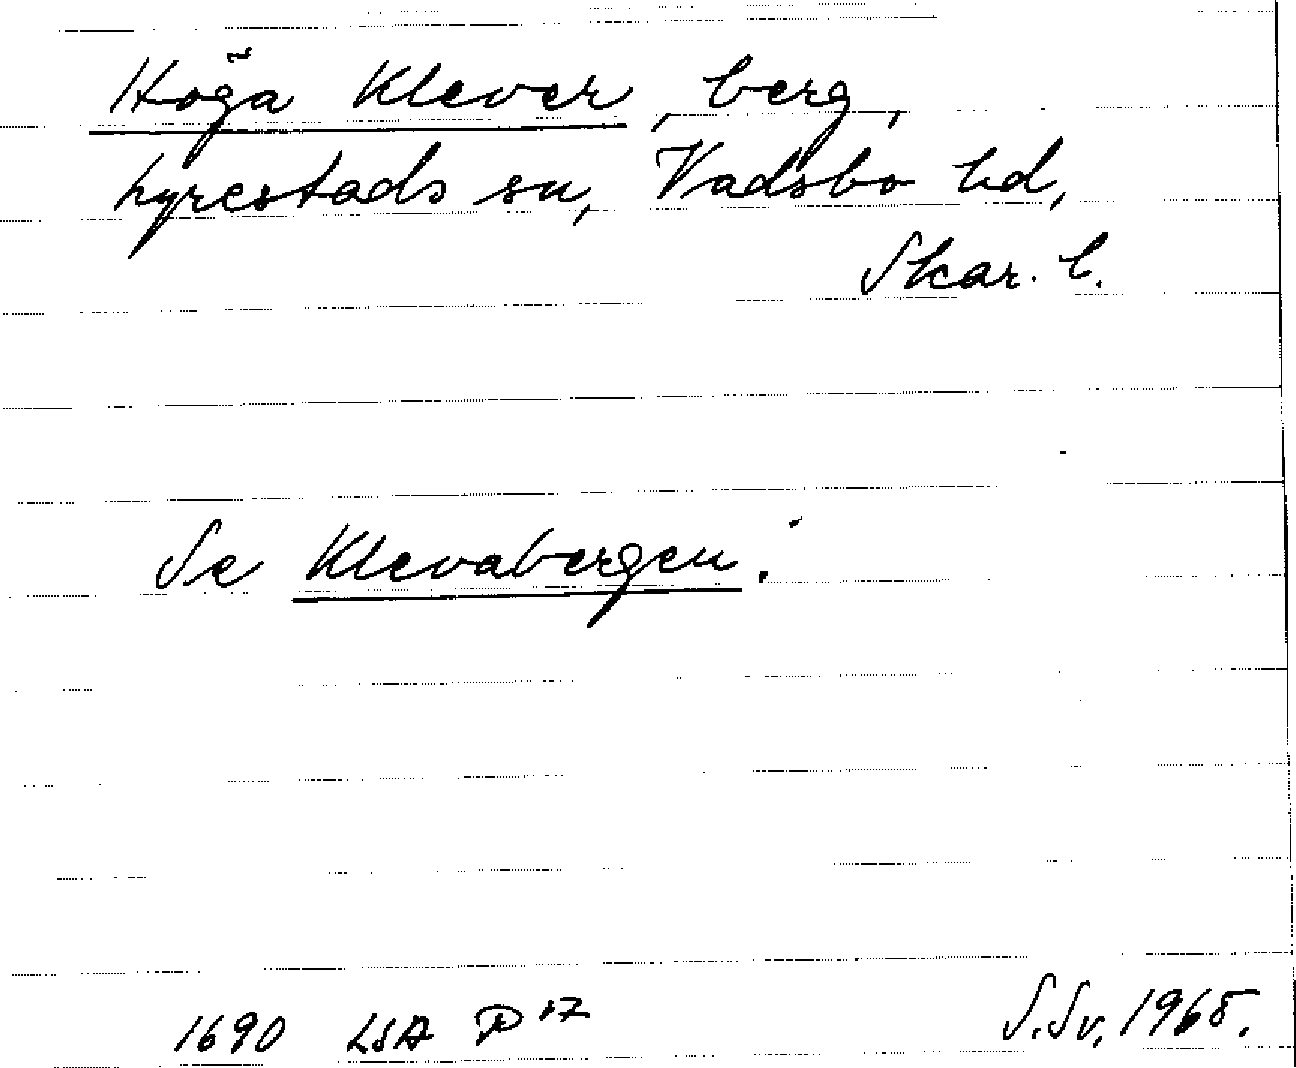 Höga Klever, berg,
Lyrestads sn, Vadsbo hd,
Skar. l.
Se Klevabergen.
1690 LSA P 17 S.Sv. 1965.